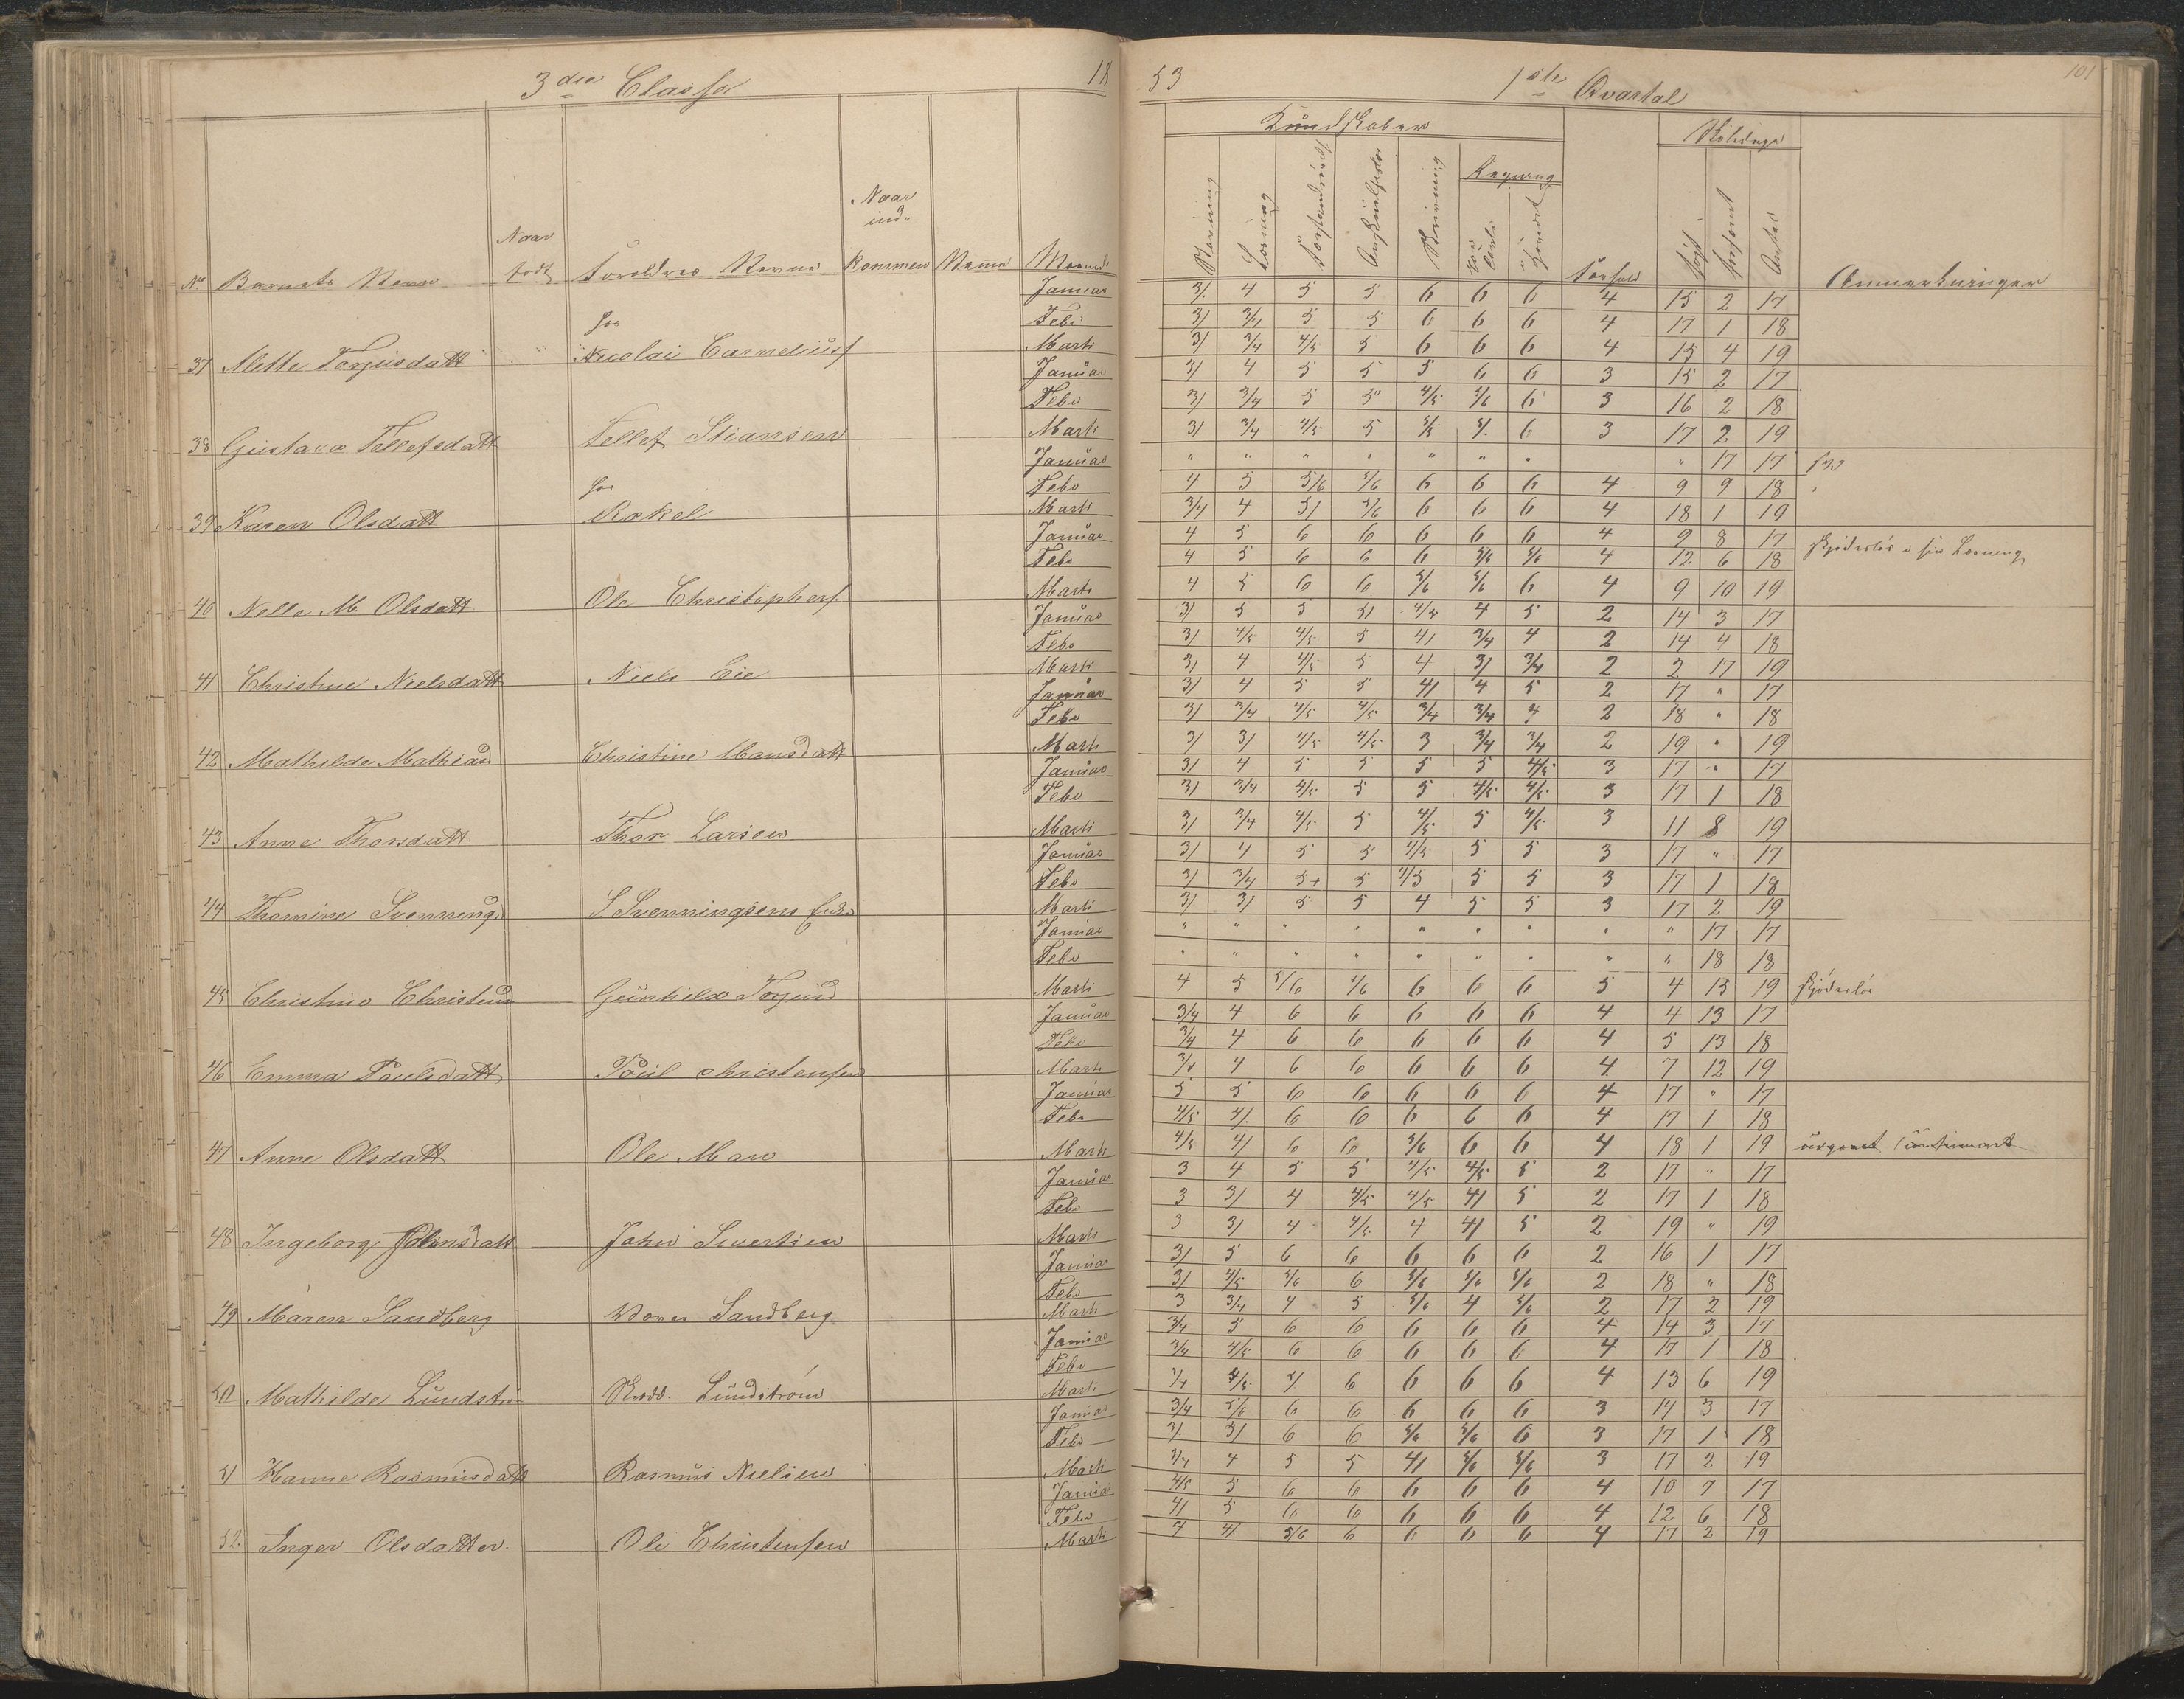 3die Classe 18
53 1ste Qvartal 101
Kundskaber
Skolings
Regning
Naar ind-
Naar
No Barnets Navn født Forældres Navne kommen Maaned
Læsning Skrivning Forhold Antal Anmærkninger
Januar 3/ 4 5 5 6 6 6 4 15 2 17
for Feb 3/ 3/4 5 5 6 6 6 4 17 1 18
37 Mette Torjusdatt Nicolai Corneliusf Marts 3/ 3/4 4/5 5 6 6 6 4 15 4 19
Januar 3/ 4 5 5 5 6 6 3 15 2 17
Febr 3/ 3/4 5 5 4/5 5/6 6 3 16 2 18
38 Gustava Tellefsdatt Tellef Stiansen Marts 3/ 3/4 4/5 5 4/5 5/ 6 3 17 2 19
Januar " " " " " " " " 17 17 syg
for Febr 4 5 5/6 5/6 6 6 6 4 9 9 18
39 Karen Olsdatt Rakel Marts 3/4 4 5/ 5/6 6 6 6 4 18 1 19
Januar 4 5 6 6 6 6 6 4 9 8 17
Febr 4 5 6 6 6 5/6 5/6 4 12 6 18
40 Nelle M. Olsdatt Ole Christophers. Marts 4 5 6 6 5/6 5/6 6 4 9 10 19
Januar 3/ 5 5 5/ 4/5 4 5 2 14 3 17
Febr 3/ 4/5 4/5 5 4/ 3/4 4 2 14 4 18
41 Christine Nielsdatt Niels Eie Marts 3/ 4 4/5 5 4 3/ 3/4 2 2 17 19
Januar 3/ 4 5 5 4/ 4 5 2 17 " 17
Febr 3/ 3/4 4/5 4/5 3/4 3/4 4 2 18 " 18
42 Mathilde Mathiasd Christine Hansdatt Marts 3/ 3/ 4/5 4/5 3 3/4 3/4 2 19 " 19
Januar 3/ 4 5 5 5 5 4/5 3 17 " 17
Febr 3/ 3/4 4/5 5 5 4/5 4/5 3 17 1 18
43 Anne Thorsdatt Thor Larsen Marts 3/ 3/4 4/5 5 4/5 5 4/5 3 11 8 19
Januar 3/ 4 5 5 4/5 5 5 3 17 " 17
Febr 3/ 3/4 5+ 5 4/5 5 5 3 17 1 18
44 Thomine Svennings S Svenningsens Enke Marts 3/ 3/ 5 5 4 5 5 3 17 2 19
Januar " " " " " " " " " 17 17
Febr " " " " " " " " " 18 18
45 Christine Christensd Gunhild Torjusd Marts 4 5 5/6 5/6 6 6 6 5 4 15 19 skjødesløs
Januar 3/4 4 6 6 6 6 6 4 4 13 17
Febr 3/4 4 6 6 6 6 6 4 5 13 18
46 Emma Paulsdatt Poul Christensen Marts 3/4 4 6 6 6 6 6 4 7 12 19
Januar 5 5 6 6 6 6 6 4 17 " 17
Febr 4/5 4/ 6 6 6 6 6 4 17 1 18
47 Anne Olsdatt Ole Moen Marts 4/5 4/ 6 6 5/6 6 6 4 18 1 19
Januar 3 4 5 5 4/5 4/5 5 2 17 " 17
Feb 3 3/ 4 4/5 4/5 4/ 5 2 17 1 18
48 Ingeborg Johnsdatt John Sivertsen Marts 3 3/ 4 4/5 4 4/ 5 2 19 " 19
Januar 3/ 5 6 6 6 6 6 2 16 1 17
Febr 3/ 4/5 5/6 6 5/6 5/6 5/6 2 18 " 18
49 Maren Sandberg Sandberg Marts 3 3/4 4 5 5/6 4 5/6 2 17 2 19
Januar 3/4 5 6 6 6 6 6 4 14 3 17
Febr 3/4 4/5 6 6 6 6 6 4 17 1 18
50 Mathilde Lundstrø Lundstrøm Marts 3/4 4/5 5/ 6 6 6 6 4 13 6 19
Januar 3/4 5/6 6 6 6 6 6 3 14 3 17
Febr 3/ 3/ 6 6 5/6 5/6 6 3 17 1 18
51 Hanne Rasmusdatt Rasmus Nielsen Marts 3/4 4 5 5 4/ 5/6 5/6 3 17 2 19
Januar 4/5 5 6 6 6 6 6 4 10 7 17
Febr 4/ 5 6 6 6 6 6 4 12 6 18
52. Inger Olsdatter. Ole Christensen Marts 4 4/ 5/6 6 6 6 6 4 17 2 19